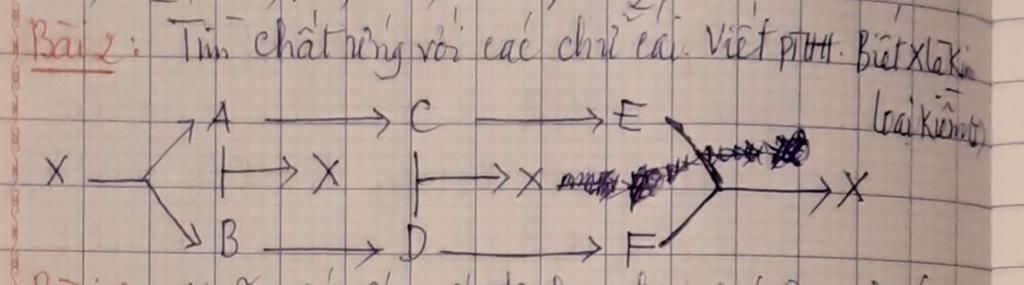 Bài 2: Tìm chất ứng với các chữ cái. Viết ptHH. Biết X là Kim
loại kiềm
A → C → E
X → X → X → X
B → D → F